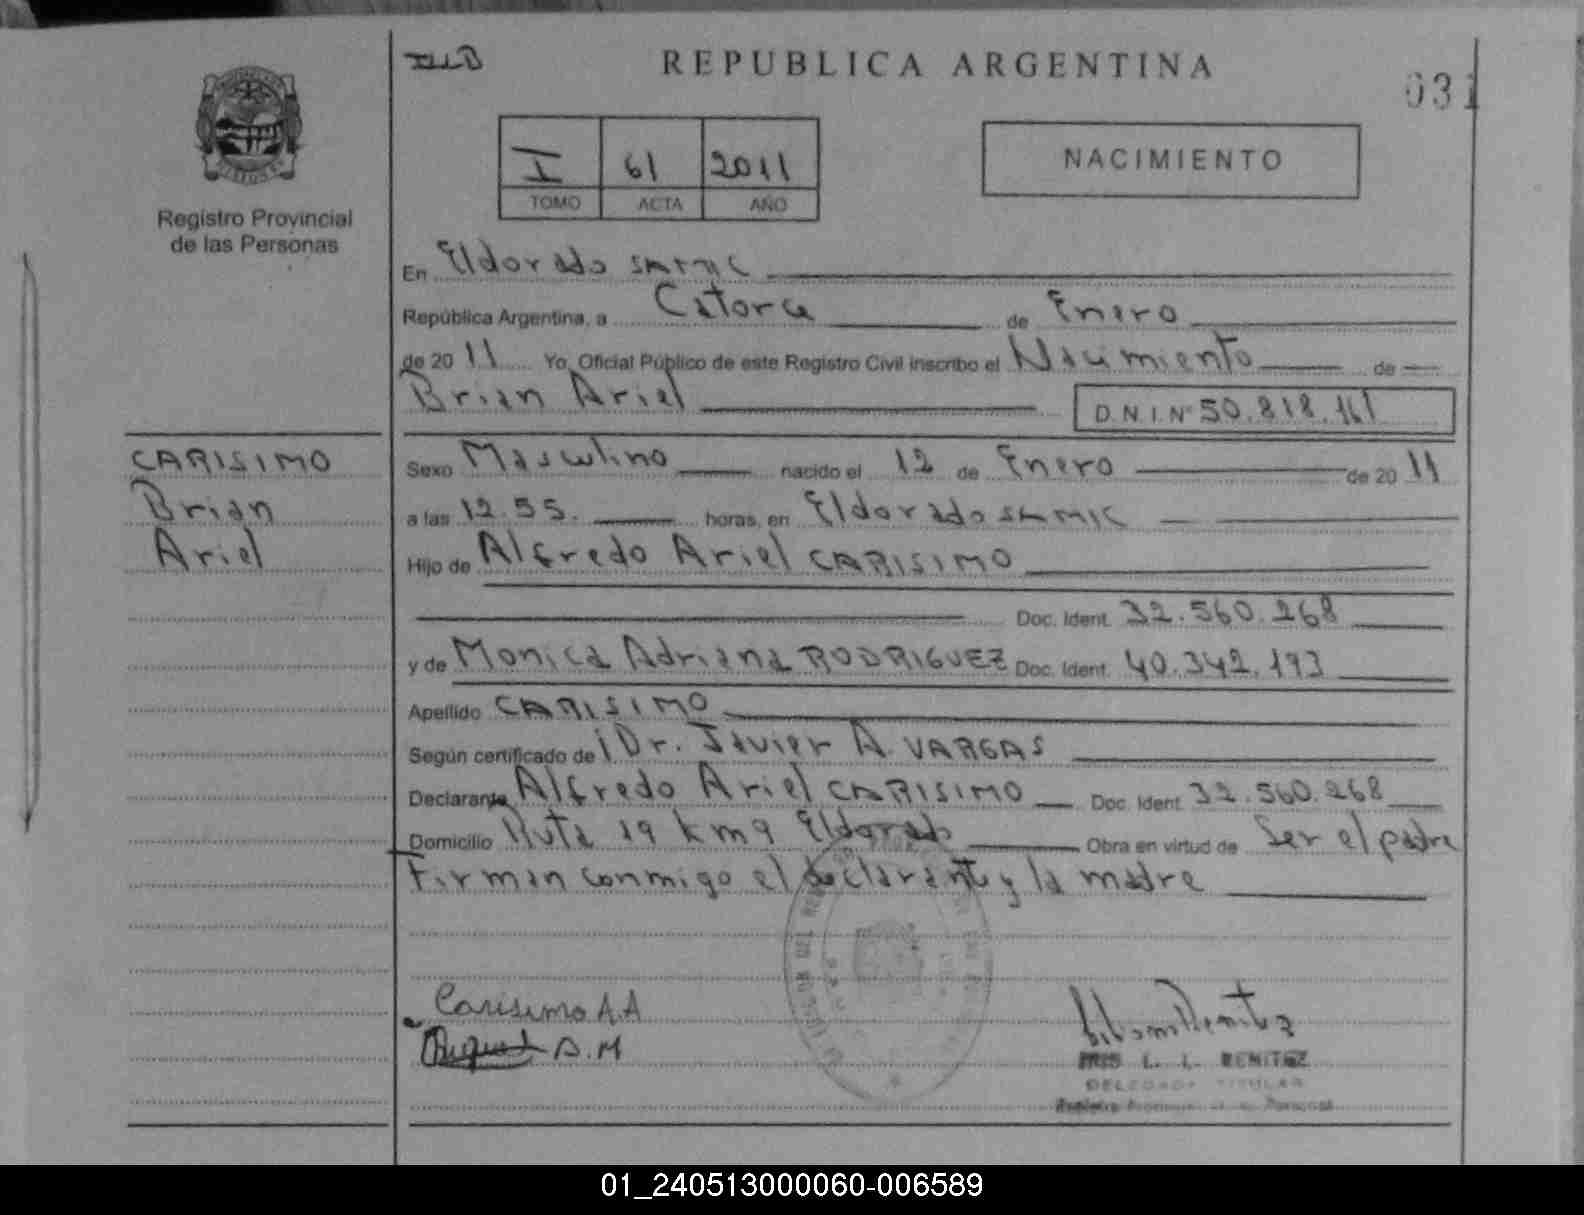 REPUBLICA ARGENTINA
031
I 61 2011
TOMO ACTA AÑO
NACIMIENTO
Registro Provincial
de las Personas
En Eldorado SAMIC
República Argentina, a Catorce de Enero
de 2011 Yo, Oficial Público de este Registro Civil inscribo el Nacimiento de
Brian Ariel D.N.I.Nº 50.818.161
CARISIMO
Brian
Ariel
Sexo Masculino nacido el 12 de Enero de 2011
a las 12.55. horas, en Eldorado SAMIC
Hijo de Alfredo Ariel CARISIMO
Doc. Ident. 32.560.268
y de Monica Adriana RODRIGUEZ Doc. Ident. 40.342.193
Apellido CARISIMO
Según certificado de Dr. Javier A. VARGAS
Declarante Alfredo Ariel CARISIMO Doc. Ident. 32.560.268
Domicilio Ruta 19 km 9 Eldorado Obra en virtud de Ser el padre
Firman conmigo el declarante y la madre
Carisimo A.A
A.M
L. I. BENITEZ
DELEGADA TITULAR
01_240513000060-006589